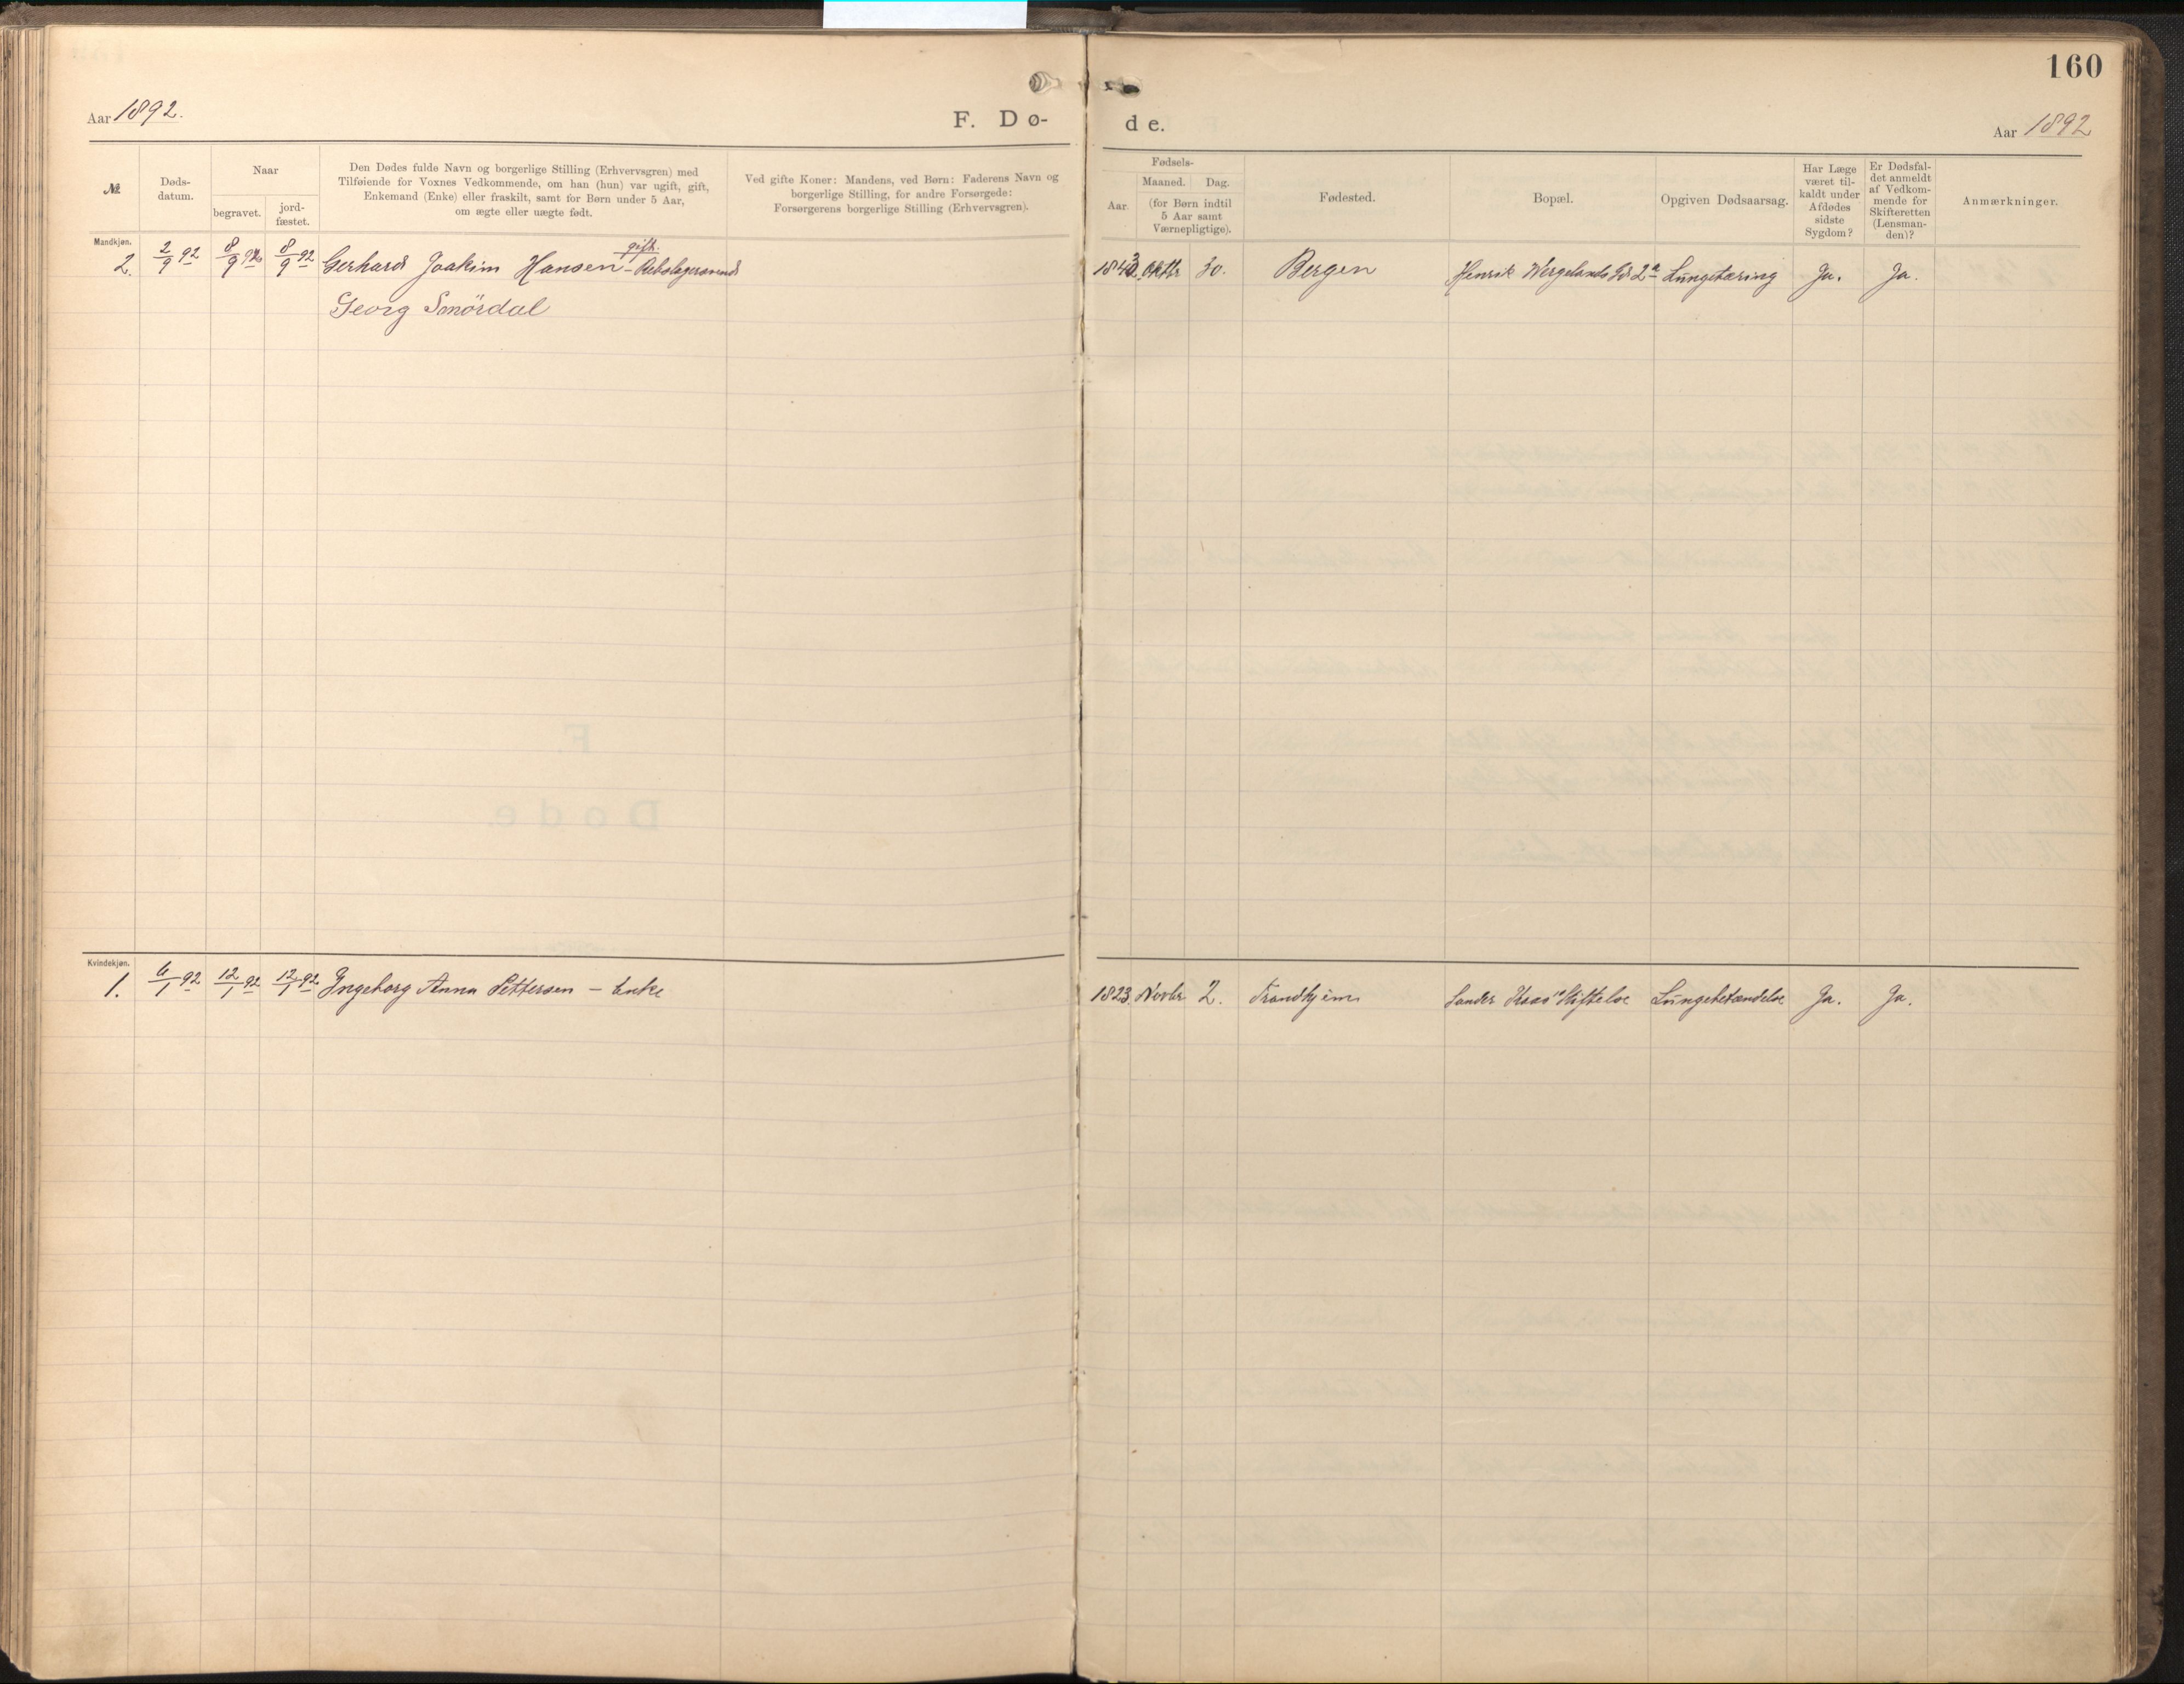 160
Aar 1892.
F. Dø-
de.
Aar 1892
№
Døds-
datum.
Naar
begravet.
jord-
fæstet.
Den Dødes fulde Navn og borgerlige Stilling (Erhvervsgren) med
Tilføiende for Voxnes Vedkommende, om han (hun) var ugift, gift,
Enkemand (Enke) eller fraskilt, samt for Børn under 5 Aar,
om ægte eller uægte født.
Ved gifte Koner: Mandens, ved Børn: Faderens Navn og
borgerlige Stilling, for andre Forsørgede:
Forsørgerens borgerlige Stilling (Erhvervsgren).
Fødsels-
Aar.
Maaned.
Dag.
(for Børn indtil
5 Aar samt
Værnepligtige).
Fødested.
Bopæl.
Opgiven Dødsaarsag.
Har Læge
været til-
kaldt under
Afdødes
sidste
Sygdom?
Er Dødsfal-
det anmeldt
af Vedkom-
mende for
Skifteretten
(Lensman-
den)?
Anmærkninger.
Mandkjøn.
gift.
2. 2/9 92 8/9 92 8/9 92 Gerhard Joakim Hansen - Rebslagersvend 1843 Oktbr 30. Bergen Henrik Wergelands Gd 2a Lungetæring Ja. Ja.
Georg Smørdal
Kvindekjøn.
1. 6/1 92 12/1 92 12/1 92 Ingeborg Anna Pettersen - Enke 1823 Novbr 2. Trondhjem Sander Kaas' Stiftelse Lungebetændelse Ja. Ja.